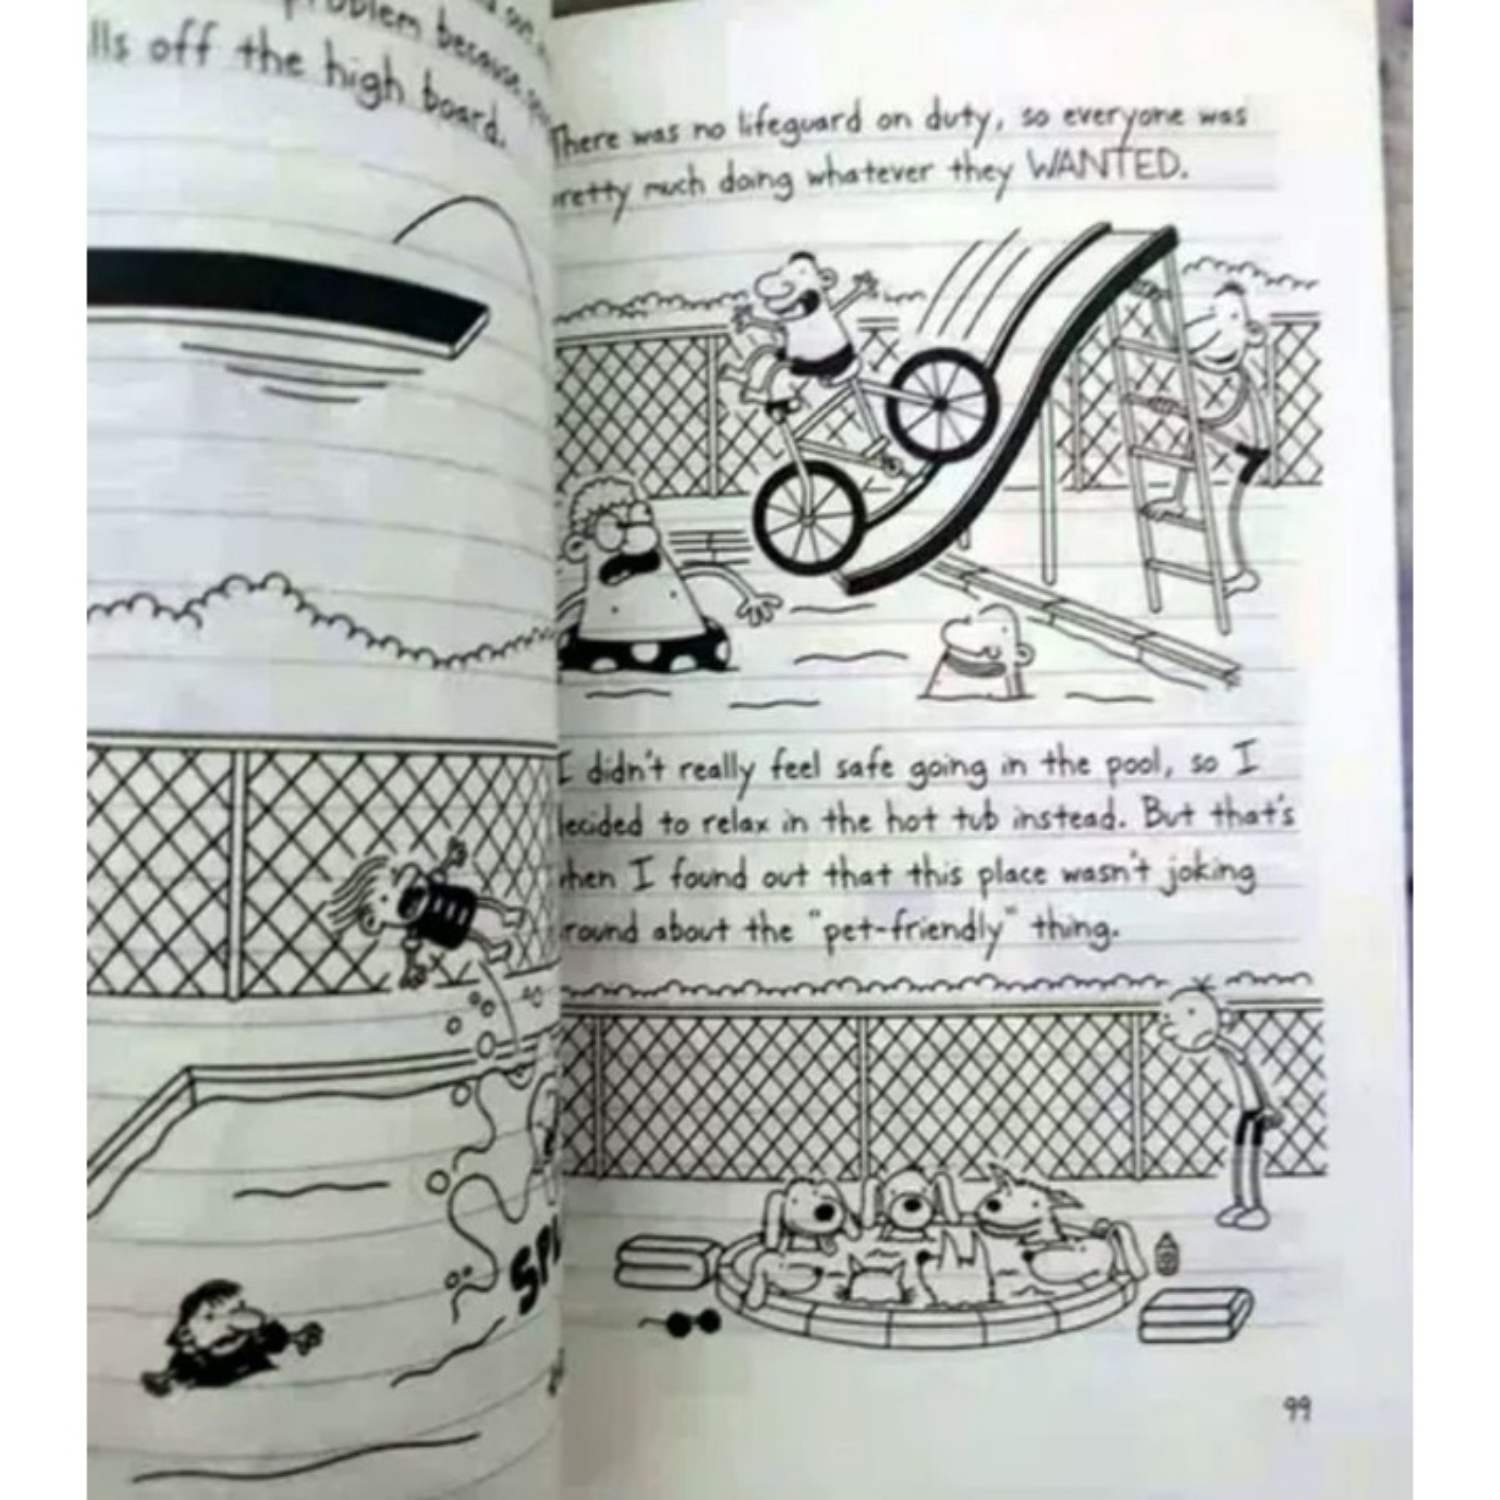 problem because
lls off the high board.
SPL
There was no lifeguard on duty, so everyone was
retty much doing whatever they WANTED.
I didn't really feel safe going in the pool, so I
ecided to relax in the hot tub instead. But that's
hen I found out that this place wasn't joking
round about the "pet-friendly" thing.
99